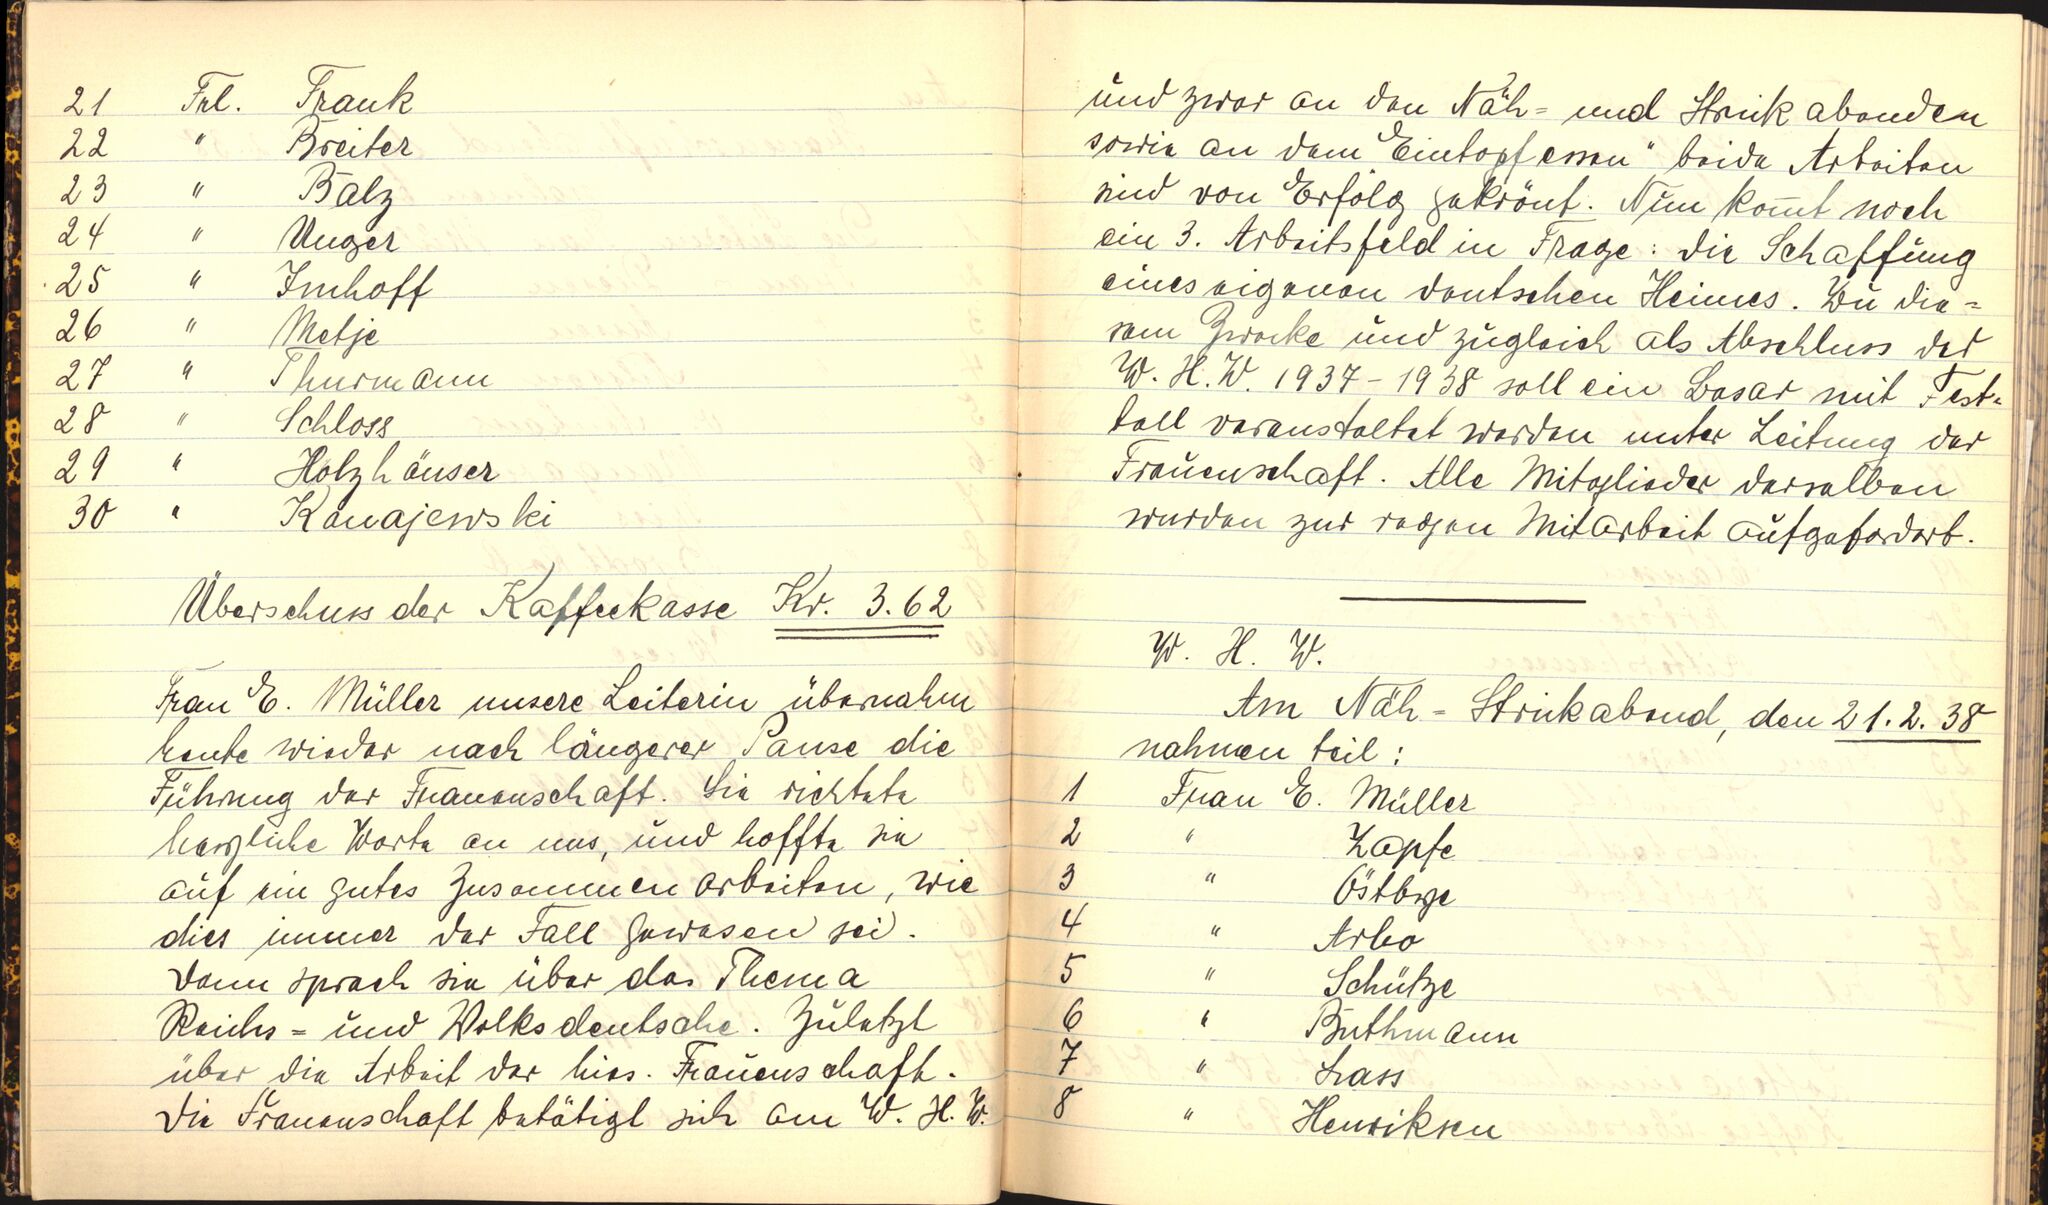 21 Frl. Frank
22 " Breiter
23 " Balz
24 " Unger
25 " Imhoff
26 " Metje
27 " Thurmann
28 " Schloss
29 " Holzhäuser
30 " Kanajewski
Überschuss der Kaffeekasse Kr. 3.62
Frau E. Müller unsere Leiterin übernahm
heute wieder nach längerer Pause die
Führung der Frauenschaft. Sie richtete
herzliche Worte an uns, und hoffte sie
auf ein gutes Zusammenarbeiten, wie
dies immer der Fall gewesen sei.
Dann sprach sie über das Thema
Reichs= und Volksdeutsche. Zuletzt
über die Arbeit der hies. Frauenschaft.
Die Frauenschaft betätigt sich am W. H. W.
und zwar an den Näh= und Strickabenden
sowie an dem "Eintopfessen" beide Arbeiten
sind von Erfolg gekrönt. Nun kom̄t noch
ein 3. Arbeitsfeld in Frage: die Schaffung
eines eigenen deutschen Heimes. Zu die=
sem Zwecke und zugleich als Abschluss der
W. H. W. 1937-1938 soll ein Basar mit Fest=
ball veranstaltet werden unter Leitung der
Frauenschaft. Alle Mitglieder derselben
wurden zur regen Mitarbeit aufgefordert.
W. H. W.
Am Näh= Strickabend, den 21.2.38
nahmen teil:
1 Frau E. Müller
2 " Zapfe
3 " Östbye
4 " Arbo
5 " Schütze
6 " Buthmann
7 " Lass
8 " Henriksen